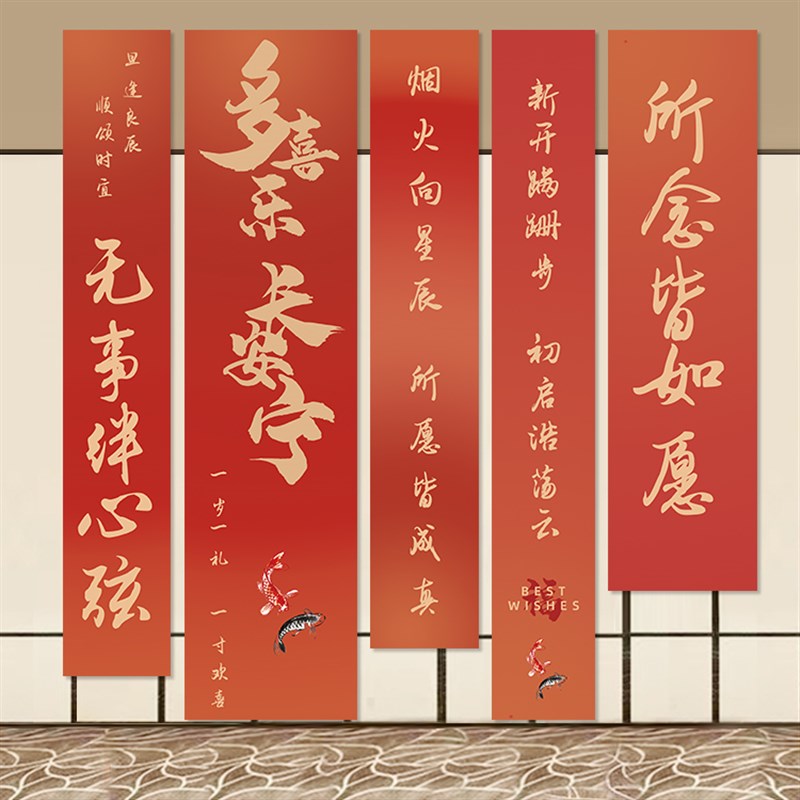 且逢良辰
顺颂时宜
无事绊心弦
多喜乐
长安宁
一岁一礼 一寸欢喜
烟火向星辰 所愿皆成真
新开蹒跚步 初启浩荡云
福
BEST
WISHES
所念皆如愿